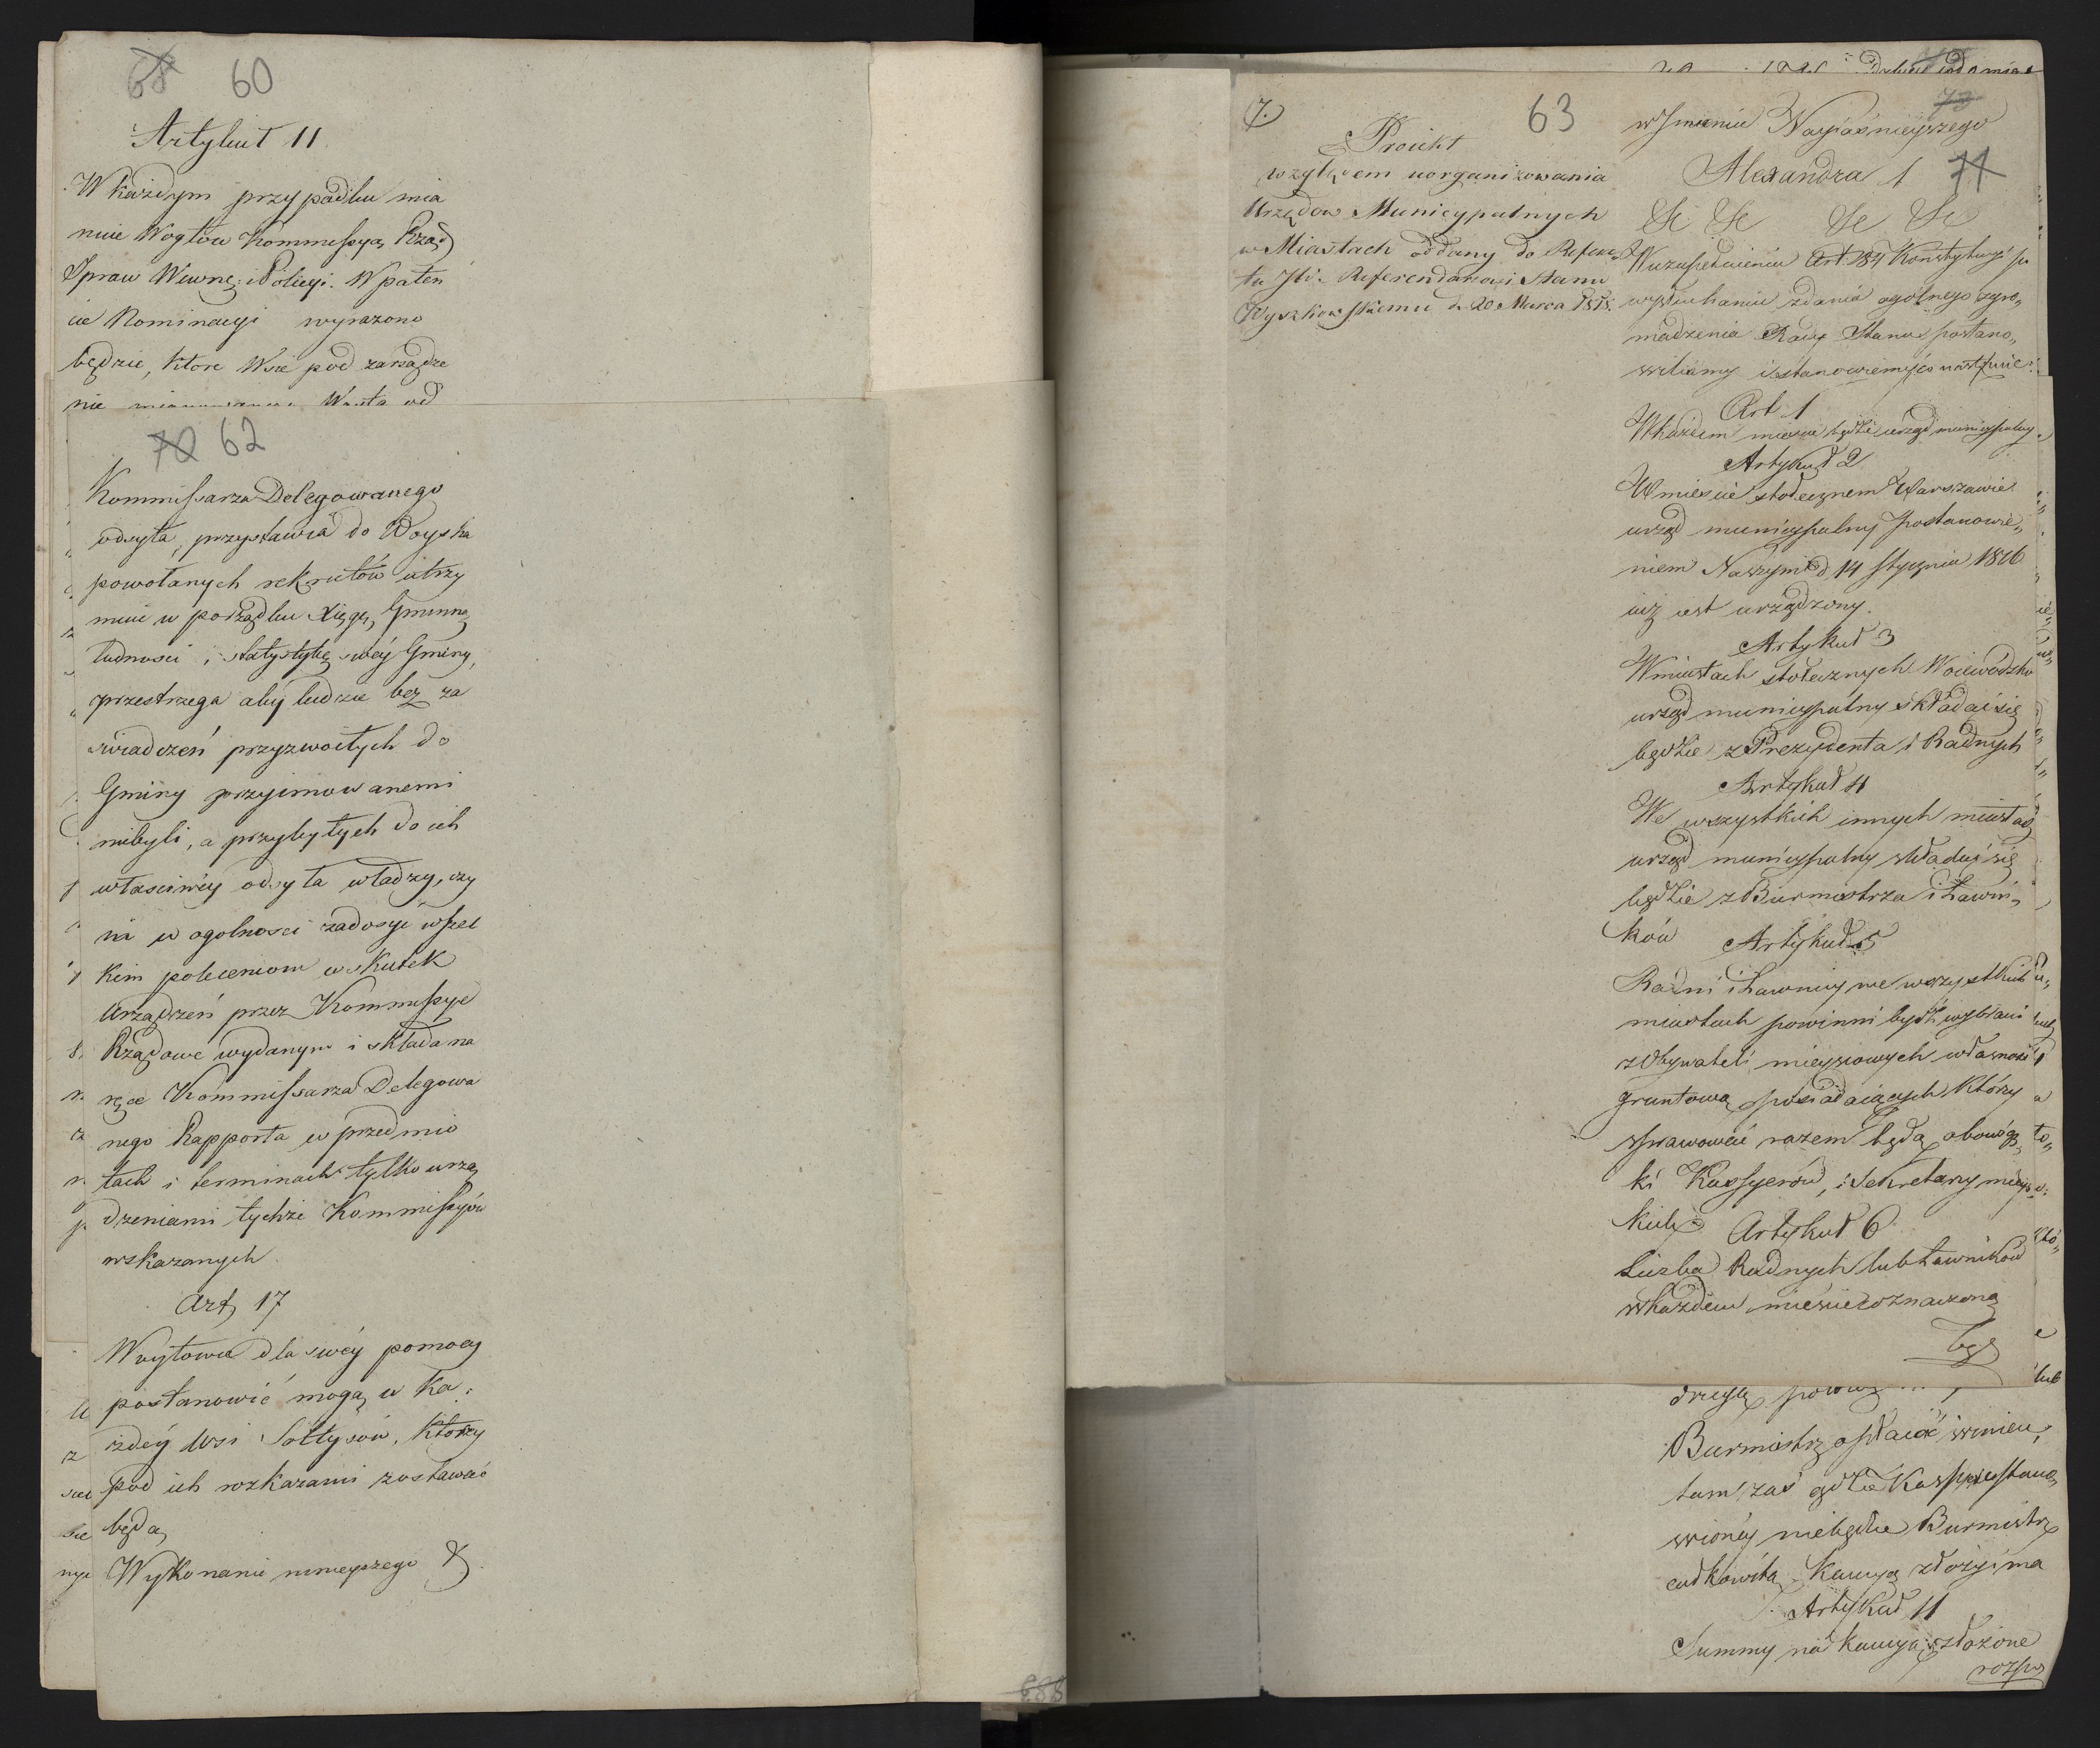 68 60
Artykuł 11
W każdym przypadku mia
nuie Wogtów Kommissya Rząd
Spraw Wewnę: i Policyi. W paten
cie Nominacyi wyrazono
będzie, ktore Wsie pod zarządze
nie Woyta od
70 62
Kommissarza Delegowanego
odsyła, przystawia do Woyska
powołanych rekrutów utrzy
muie w porządku Xięgę Gminną
ludnosci i statystykę swéy Gminy,
przestrzega aby ludzie bez za
swiadczeń przyzwoitych do
Gminy przyimowanemi
niebyli, a przybyłych do ich
własciwéy odsyła władzy, czy
ni w ogolnosci zadosyć wszel
kim poleceniom w skutek
Urządzeń przez Kommissye
Rządowe wydanym i składa na
ręce Kommissarza Delegowa
nego Rapporta w przedmio
tach i terminach tylko urzą
dzeniami tychże Kommissyów
wskazanych
Art 17
Woytowie dla swéy pomocy
postanowić mogą w ka:
zdéy Wsi Sołtysów, Którzy
pod ich rozkazami zostawać
będą,
Wykonanie ninieyszego &
888
7.
63
Proiekt
względem uorganizowania
Urzędow Municypalnych
w Miastach oddany do Refera„
tu JW. Referendarzowi Stanu
Wyszkowskiemu d. 20 Marca 1818.
73
w Jmieniu Nayiaśnieyszego
Alexandra 1 71
&c &c &c &c
W uzupełnieniu Art. 184 Konstytucyi po
wysłuchaniu zdania ogólnego zgro„
madzenia Rady Stanu postano„
wiliśmy i stanowiemy co nastpuie:
Art 1
W każdem miescie będzie urząd municypalny
Artykuł 2
W miescie stołecznem Warszawie
urząd municypalny postanowie„
niem Naszym d. 14 stycznia 1816
iuż iest urządzony.
Artykuł 3
W miastach stołecznych Woiewodztw
urząd municypalny składać się
będzie z Prezydenta i Radnych
Artykuł 4
We wszystkich innych miastach
urząd municypalny składać się
będzie z Burmistrza i Ławni„
ków
Artykuł 5
Radni i Ławnicy we wszystkich
miastach powinni bydź wybrani
z Obywateli mieyscowych własność
gruntową posiadaiących Którzy
sprawować razem będą obowiąz„
ki Kassyerów, i Sekretarzy mieys
kich.
Artykuł 6
Liczba Radnych lub Ławników
w każdem miescie oznaczoną
będ
Burmistrz opłaićć winien,
tam zaś gdzie Kassy ustano„
wionéy niebędzie Burmistrz
całkowitą Kaucyą złożyć ma
Artykuł 11
Summy na kaucyą złożone
rozpo